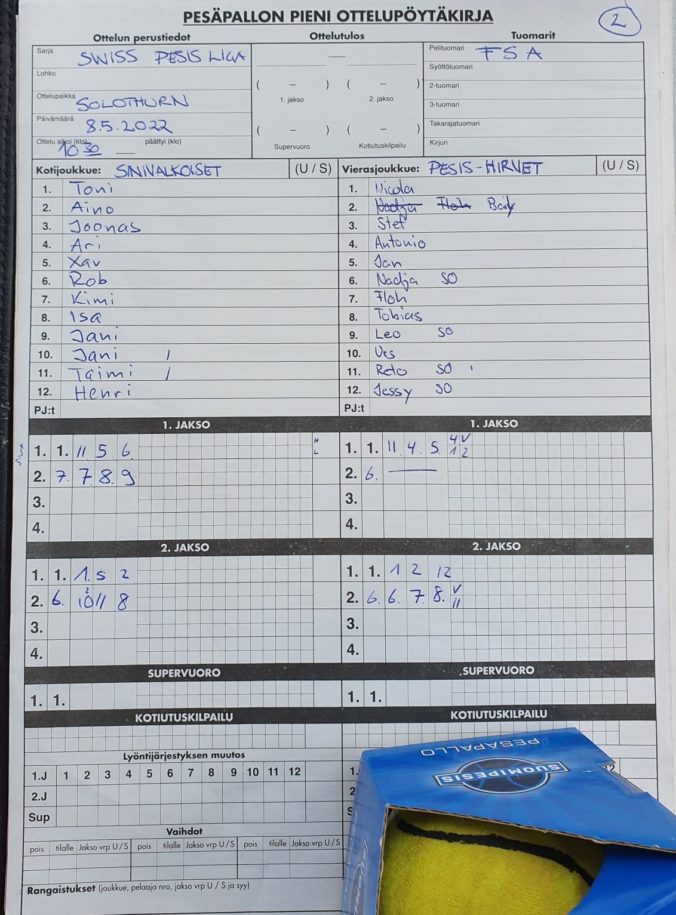 PESÄPALLON PIENI OTTELUPÖYTÄKIRJA
2
Ottelun perustiedot Ottelutulos Tuomarit
Sarja SWISS PESIS LIGA
Pelituomari FSA
Lohko
Syöttötuomari
( – ) ( – )
2-tuomari
Ottelupaikka SOLOTHURN
1. jakso 2. jakso
3-tuomari
Päivämäärä 8.5.2022
Takarajatuomari
( – ) ( – )
Ottelu alkoi (klo) 10 30 päättyi (klo)
Supervuoro Kotiutuskilpailu
Kirjuri
Kotijoukkue: SINIVALKOISET (U / S) Vierasjoukkue: PESIS-HIRVET (U / S)
1. Toni 1. Nicola
2. Aino 2. Nadja Floh
3. Joonas 3. Stef
4. Ari 4. Antonio
5. Xav 5. Jan
6. Rob 6. Nadja SO
7. Kimi 7. Floh
8. Isa 8. Tobias
9. Jani 9. Leo SO
10. Jani / 10. Urs
11. Taimi / 11. Reto SO '
12. Henri 12. Jessy SO
PJ:t PJ:t
1. JAKSO 1. JAKSO
1. 1. 11 5 6 1. 1. 11 4. 5. 4V 12
2. 7. 7. 8. 9 2. 6.
3. 3.
4. 4.
2. JAKSO 2. JAKSO
1. 1. 1. 5 2 1. 1. 1 2 12
2. 6. 10 11 8 2. 6. 6. 7. 8. V 11
3. 3.
4. 4.
SUPERVUORO SUPERVUORO
1. 1. 1. 1.
KOTIUTUSKILPAILU KOTIUTUSKILPAILU
Lyöntijärjestyksen muutos
1.J 1 2 3 4 5 6 7 8 9 10 11 12 1.
2.J 2
Sup S
Vaihdot
pois tilalle Jakso vrp U / S pois tilalle Jakso vrp U / S pois tilalle Jakso vrp U / S
Rangaistukset (joukkue, pelaaja nro, jakso vrp U / S ja syy)
PESÄPALLO
SUOMIPESIS